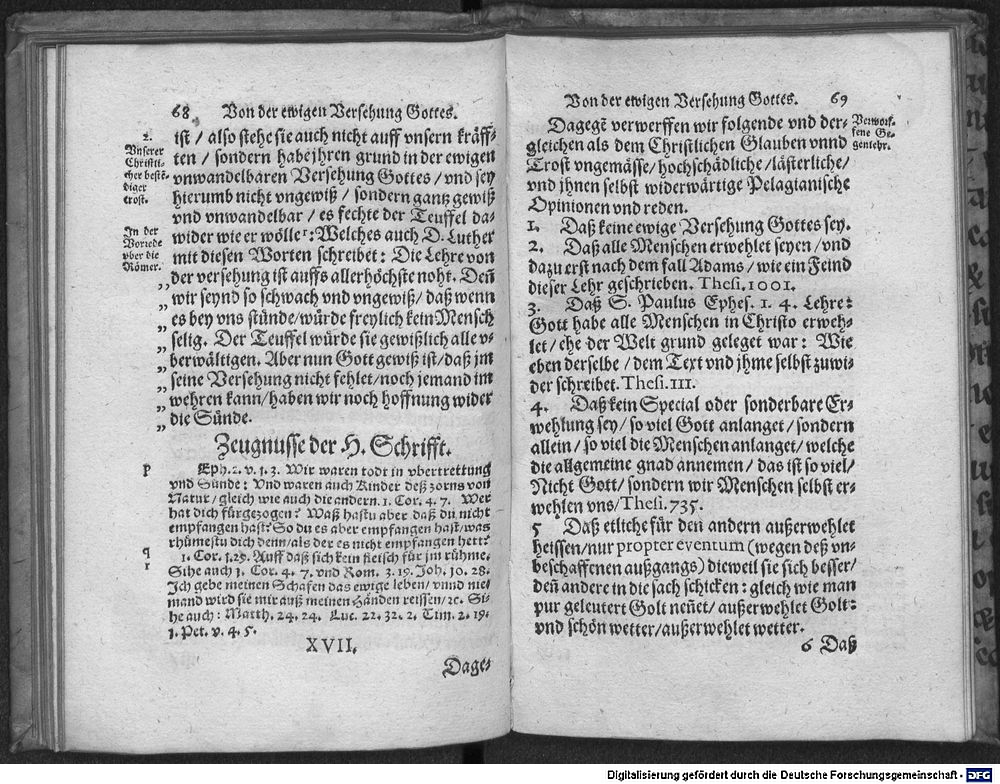 68 Von der ewigen Versehung Gottes.
2.
Vnserer
Christli-
cher bestë-
diger
trost.
In der
Vorrede
vber die
Römer.
ist / also stehe sie auch nicht auff vnsern kräff-
ten / sondern habe jhren grund in der ewigen
vnwandelbaren Versehung Gottes / vnd sey
hierumb nicht vngewiß / sondern gantz gewiß
vnd vnwandelbar / es fechte der Teuffel da-
wider wie er wölle r: Welches auch D. Luther
mit diesen Worten schreibet: Die Lehre von
„ der versehung ist auffs allerhöchste noht. Deñ
„ wir seynd so schwach vnd vngewiß / daß wenn
„ es bey vns stünde / würde freylich kein Mensch
„ selig. Der Teuffel würde sie gewißlich alle v-
„ berwältigen. Aber nun Gott gewiß ist / daß jm
„ seine Versehung nicht fehlet / noch jemand im
„ wehren kann / haben wir noch hoffnung wider
„ die Sünde.
Zeugnusse der H. Schrifft.
p Eph. 2. v. 1. 3. Wir waren todt in vbertrettung
vnd Sünde: Vnd waren auch Kinder deß zorns von
Natur / gleich wie auch die andern. 1. Cor. 4. 7. Wer
hat dich fürgezogen? Waß hastu aber daß du nicht
empfangen hast? So du es aber empfangen hast / was
rhümestu dich denn / als der es nicht empfangen hett?
q 1. Cor. 1. 29. Auff daß sich kein fleisch für jm rühme.
r Sihe auch 1. Cor. 4. 7. vnd Rom. 3. 19. Joh. 10. 28.
Ich gebe meinen Schafen das ewige leben / vnnd nie-
mand wird sie mir auß meinen Händen reissen / ꝛc. Si-
he auch: Matth. 24. 24. Luc. 22. 32. 2. Tim. 2. 19.
1. Pet. v. 4. 5.
XVII.
Dage-
Von der ewigen Versehung Gottes. 69
Verworf-
fene Ge-
genlehr.
Dagegẽ verwerffen wir folgende vnd der-
gleichen als dem Christlichen Glauben vnnd
Trost vngemässe / hochschädliche / lästerliche /
vnd jhnen selbst widerwärtige Pelagianische
Opinionen vnd reden.
1. Daß keine ewige Versehung Gottes sey.
2. Daß alle Menschen erwehlet seyen / vnd
dazu erst nach dem fall Adams / wie ein Feind
dieser Lehr geschrieben. Thesi. 1001.
3. Daß S. Paulus Ephes. 1. 4. Lehre:
Gott habe alle Menschen in Christo erweh-
let / ehe der Welt grund geleget war: Wie
eben derselbe / dem Text vnd jhme selbst zuwi-
der schreibet. Thesi. 111.
4. Daß kein Special oder sonderbare Er-
wehlung sey / so viel Gott anlanget / sondern
allein / so viel die Menschen anlanget / welche
die allgemeine gnad annemen / das ist so viel /
Nicht Gott / sondern wir Menschen selbst er-
wehlen vns / Thesi. 735.
5 Daß etliche für den andern außerwehlet
heissen / nur propter eventum (wegen deß vn-
beschaffenen außgangs) dieweil sie sich besser /
deñ andere in die sach schicken: gleich wie man
pur geleutert Golt neñet / außerwehlet Golt:
vnd schön wetter / außerwehlet wetter.
6 Daß
Digitalisierung gefördert durch die Deutsche Forschungsgemeinschaft - DFG